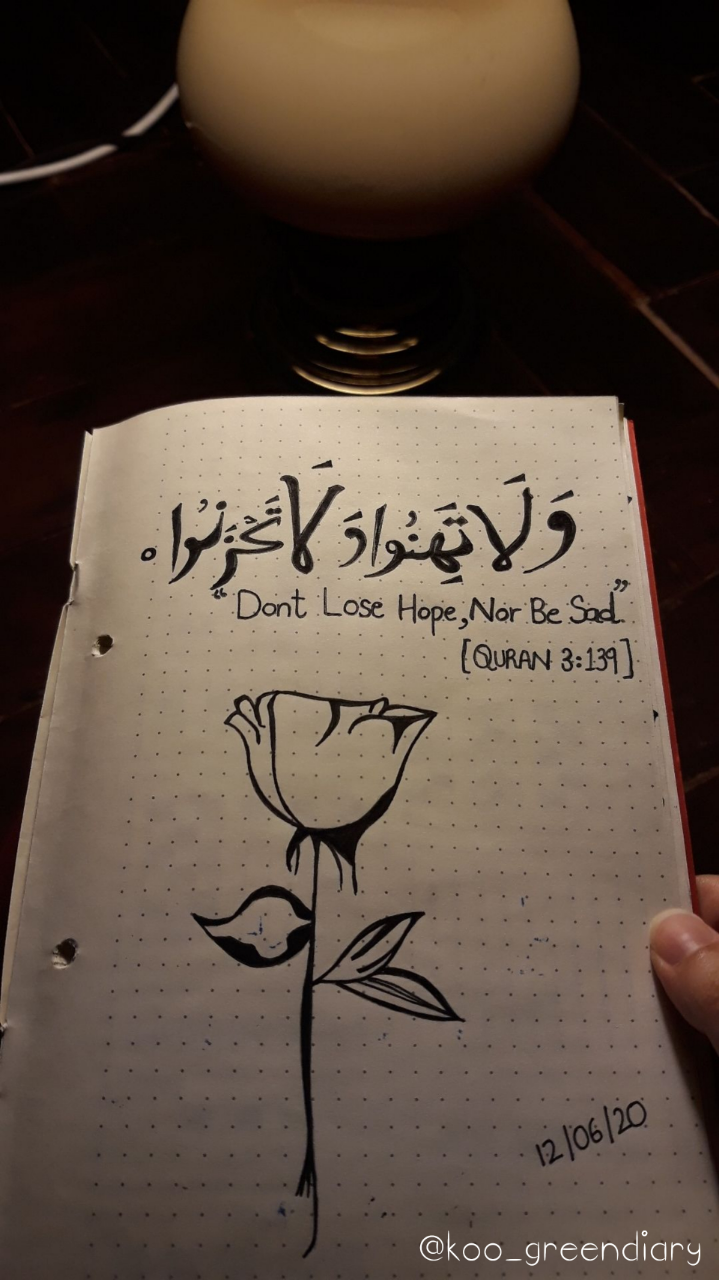 وَلَا تَهِنُوا وَلَا تَحْزَنُوا ه
“Dont Lose Hope, Nor Be Sad”
[QURAN 3:139]
12/06/20
@koo_greendiary